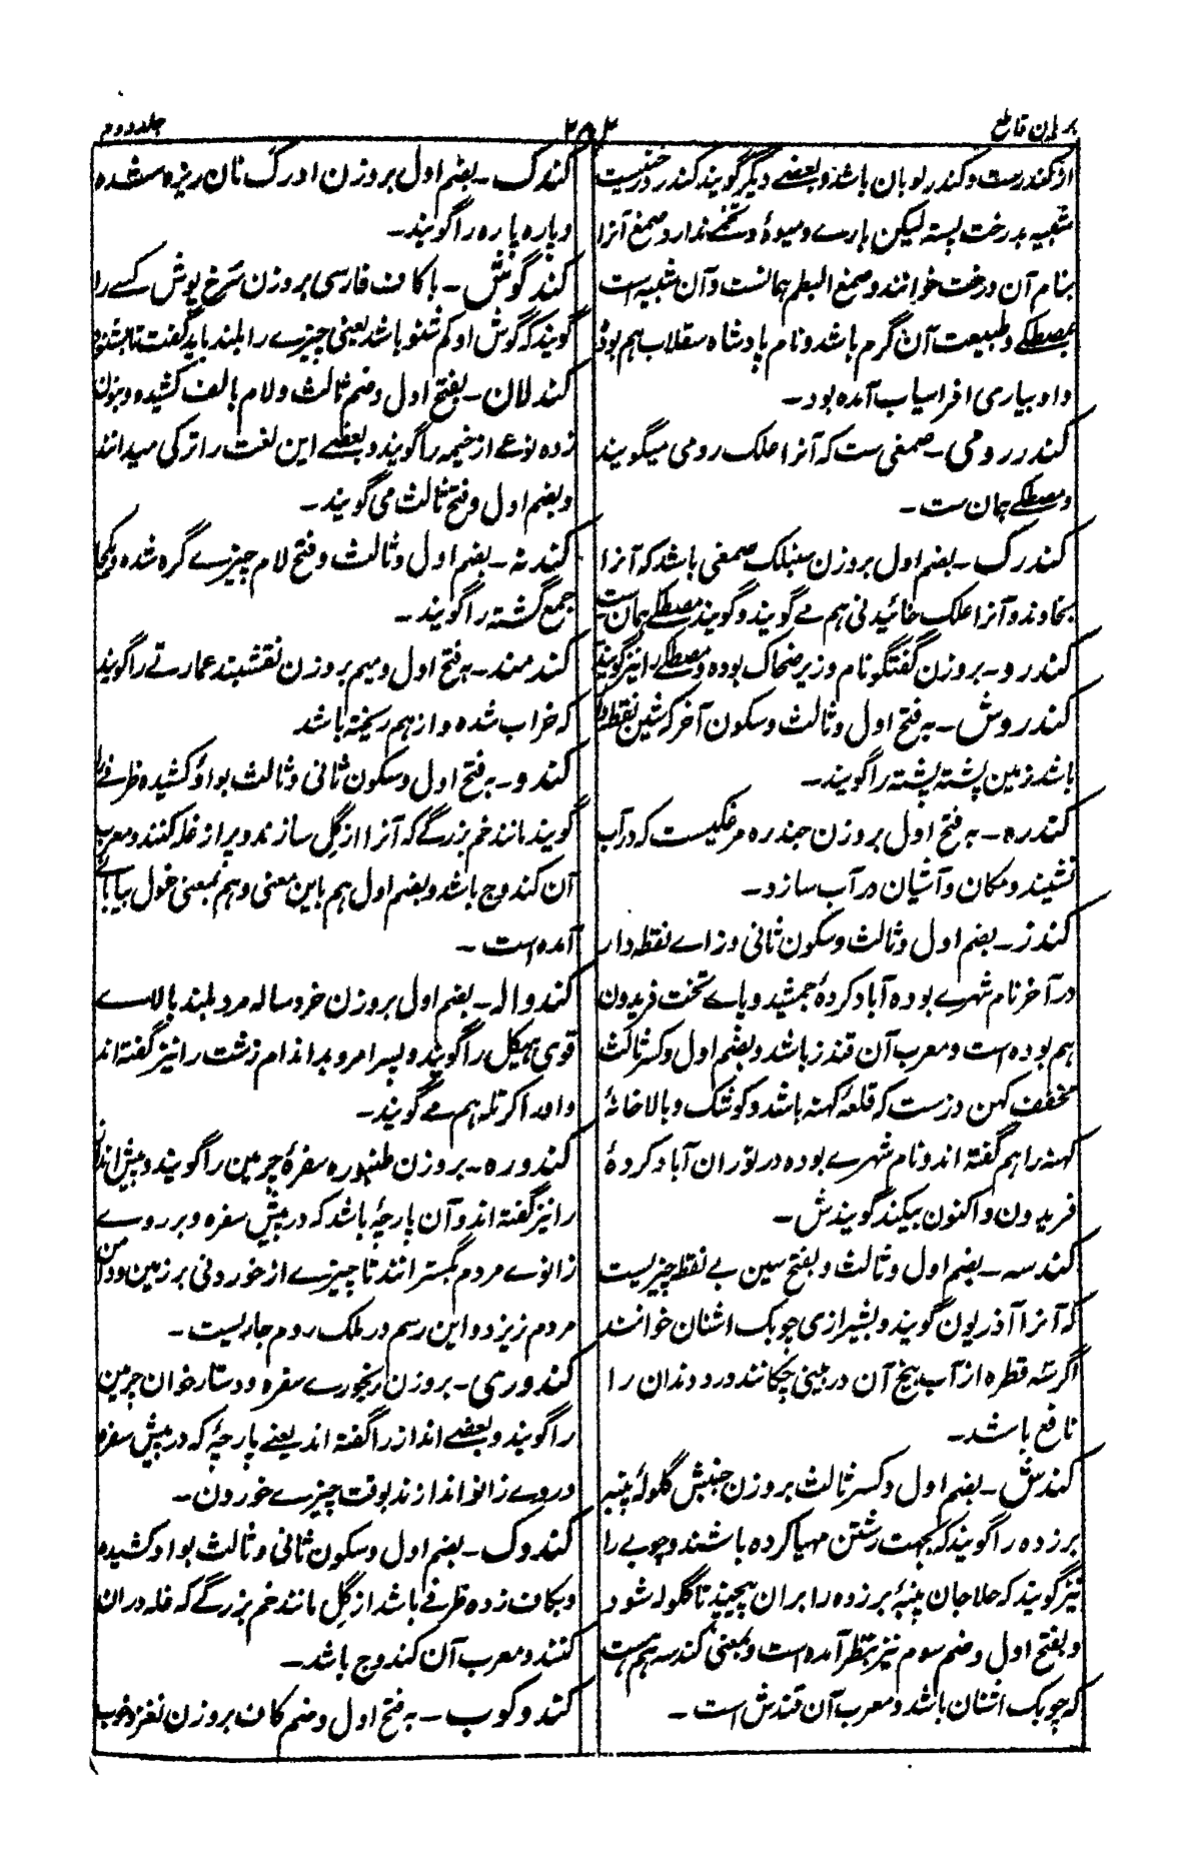 برهان قاطع
۲۵۲
جلد دوم
او کندرست و کندر لوبان باشد و بعضے دیگر گویند کندر درختیست
شبیه بدرخت پسته لیکن بارے و میوهٔ و تخمے ندارد صمغ آنرا
بنام آن درخت خوانند و صمغ البطم همانست و آن شبیه است
بمصطکے و طبیعت آن گرم باشد و نام پادشاه سقلاب هم بود
واو بیاری افراسیاب آمده بود۔
کندر رومی۔ صمغی ست که آنرا علک رومی میگویند
و مصطکے همان ست۔
کندرک۔ بضم اول بروزن سنبلک صمغی باشد که آنرا
بخاوند و آنرا علک خائیدنی هم مے گویند و گویند مصطکے همان ست
کندرو۔ بروزن گفتگو نام وزیر ضحاک بوده و مصطکے را نیز گویند
کندروش۔ به فتح اول و ثالث و سکون آخر که شین نقطه دار
باشد زمین پشته پشته را گویند۔
کندره۔ به فتح اول بروزن جندره مرغکیست که در آب
نشیند و مکان و آشیان در آب سازد۔
کندز۔ بضم اول و ثالث و سکون ثانی و زاے نقطه دار
در آخر نام شهرے بوده آباد کردهٔ جمشید و پاے تخت فریدون
هم بوده است و معرب آن قندز باشد و بضم اول و کسر ثالث
مخفف کهن دزست که قلعهٔ کهنه باشد و کوشک و بالاخانهٔ
کهنه را هم گفته اند و نام شهرے بوده در توران آباد کردهٔ
فریدون و اکنون بیکند گویندش۔
کندسه۔ بضم اول و ثالث و بفتح سین بے نقطه چیزیست
که آنرا آذریون گویند و بشیرازی چوبک اشنان خوانند
اگر سه قطره از آب بیخ آن در بینی چکانند درد دندان را
نافع باشد۔
کندش۔ بضم اول و کسر ثالث بروزن جنبش گلولهٔ پنبه
برزده را گویند که بجهت رشتن مهیا کرده باشند و چوبے را
نیز گویند که حلاجان پنبهٔ برزده را بران پیچند تا گلوله شود
و بفتح اول و ضم سوم نیز بنظر آمده است و بمعنی کندسه هم هست
که چوبک اشنان باشد و معرب آن قندش است۔
کندک۔ بضم اول بروزن اردک نان ریزه شده
و پاره پاره را گویند۔
کند گوش۔ با کاف فارسی بروزن سرخ پوش کسے را
گویند که گوش او کم شنو باشد یعنی چیزے را بلند باید گفت تا بشنود
کندلان۔ بفتح اول و ضم ثالث و لام بالف کشیده و بنون
زده نوعے از خیمه را گویند و بعضے این لغت را ترکی میدانند
و بضم اول و فتح ثالث می گویند۔
کندله۔ بضم اول و ثالث و فتح لام چیزے گره شده و یکجا
جمع گشته را گویند۔
کندمند۔ به فتح اول و میم بروزن نقشبند عمارتے را گویند
که خراب شده و از هم ریخته باشد
کندو۔ به فتح اول و سکون ثانی و ثالث بواو کشیده ظرفے را
گویند مانند خم بزرگے که آنرا از گل سازند و پر از غله کنند و معرب
آن کندوج باشد و بضم اول هم باین معنی و هم بمعنی غول بیابانے
آمده است۔
کندواله۔ بضم اول بروزن خردساله مرد بلند بالاے
قوی هیکل را گویند و پسر امرد بد اندام زشت را نیز گفته اند
و اورا کرتله هم مے گویند۔
کندوره۔ بروزن طنبوره سفرهٔ چرمین را گویند و پیش انداز
را نیز گفته اند و آن پارچهٔ باشد که در پیش سفره و بر روے
زانوے مردم بگسترانند تا چیزے از خوردنی بر زمین و دامن
مردم نریزد و این رسم در ملک روم جاریست۔
کندوری۔ بروزن رنجورے سفره و دستار خوان چرمین
را گویند و بعضے انداز را گفته اند یعنے پارچهٔ که در پیش سفره
و روے زانو اندازند بوقت چیزے خوردن۔
کندوک۔ بضم اول و سکون ثانی و ثالث بواو کشیده
و بکاف زده ظرفے باشد از گل مانند خم بزرگے که غله دران
کنند و معرب آن کندوج باشد۔
کندوکوب۔ به فتح اول و ضم کاف بروزن نغز و خوب